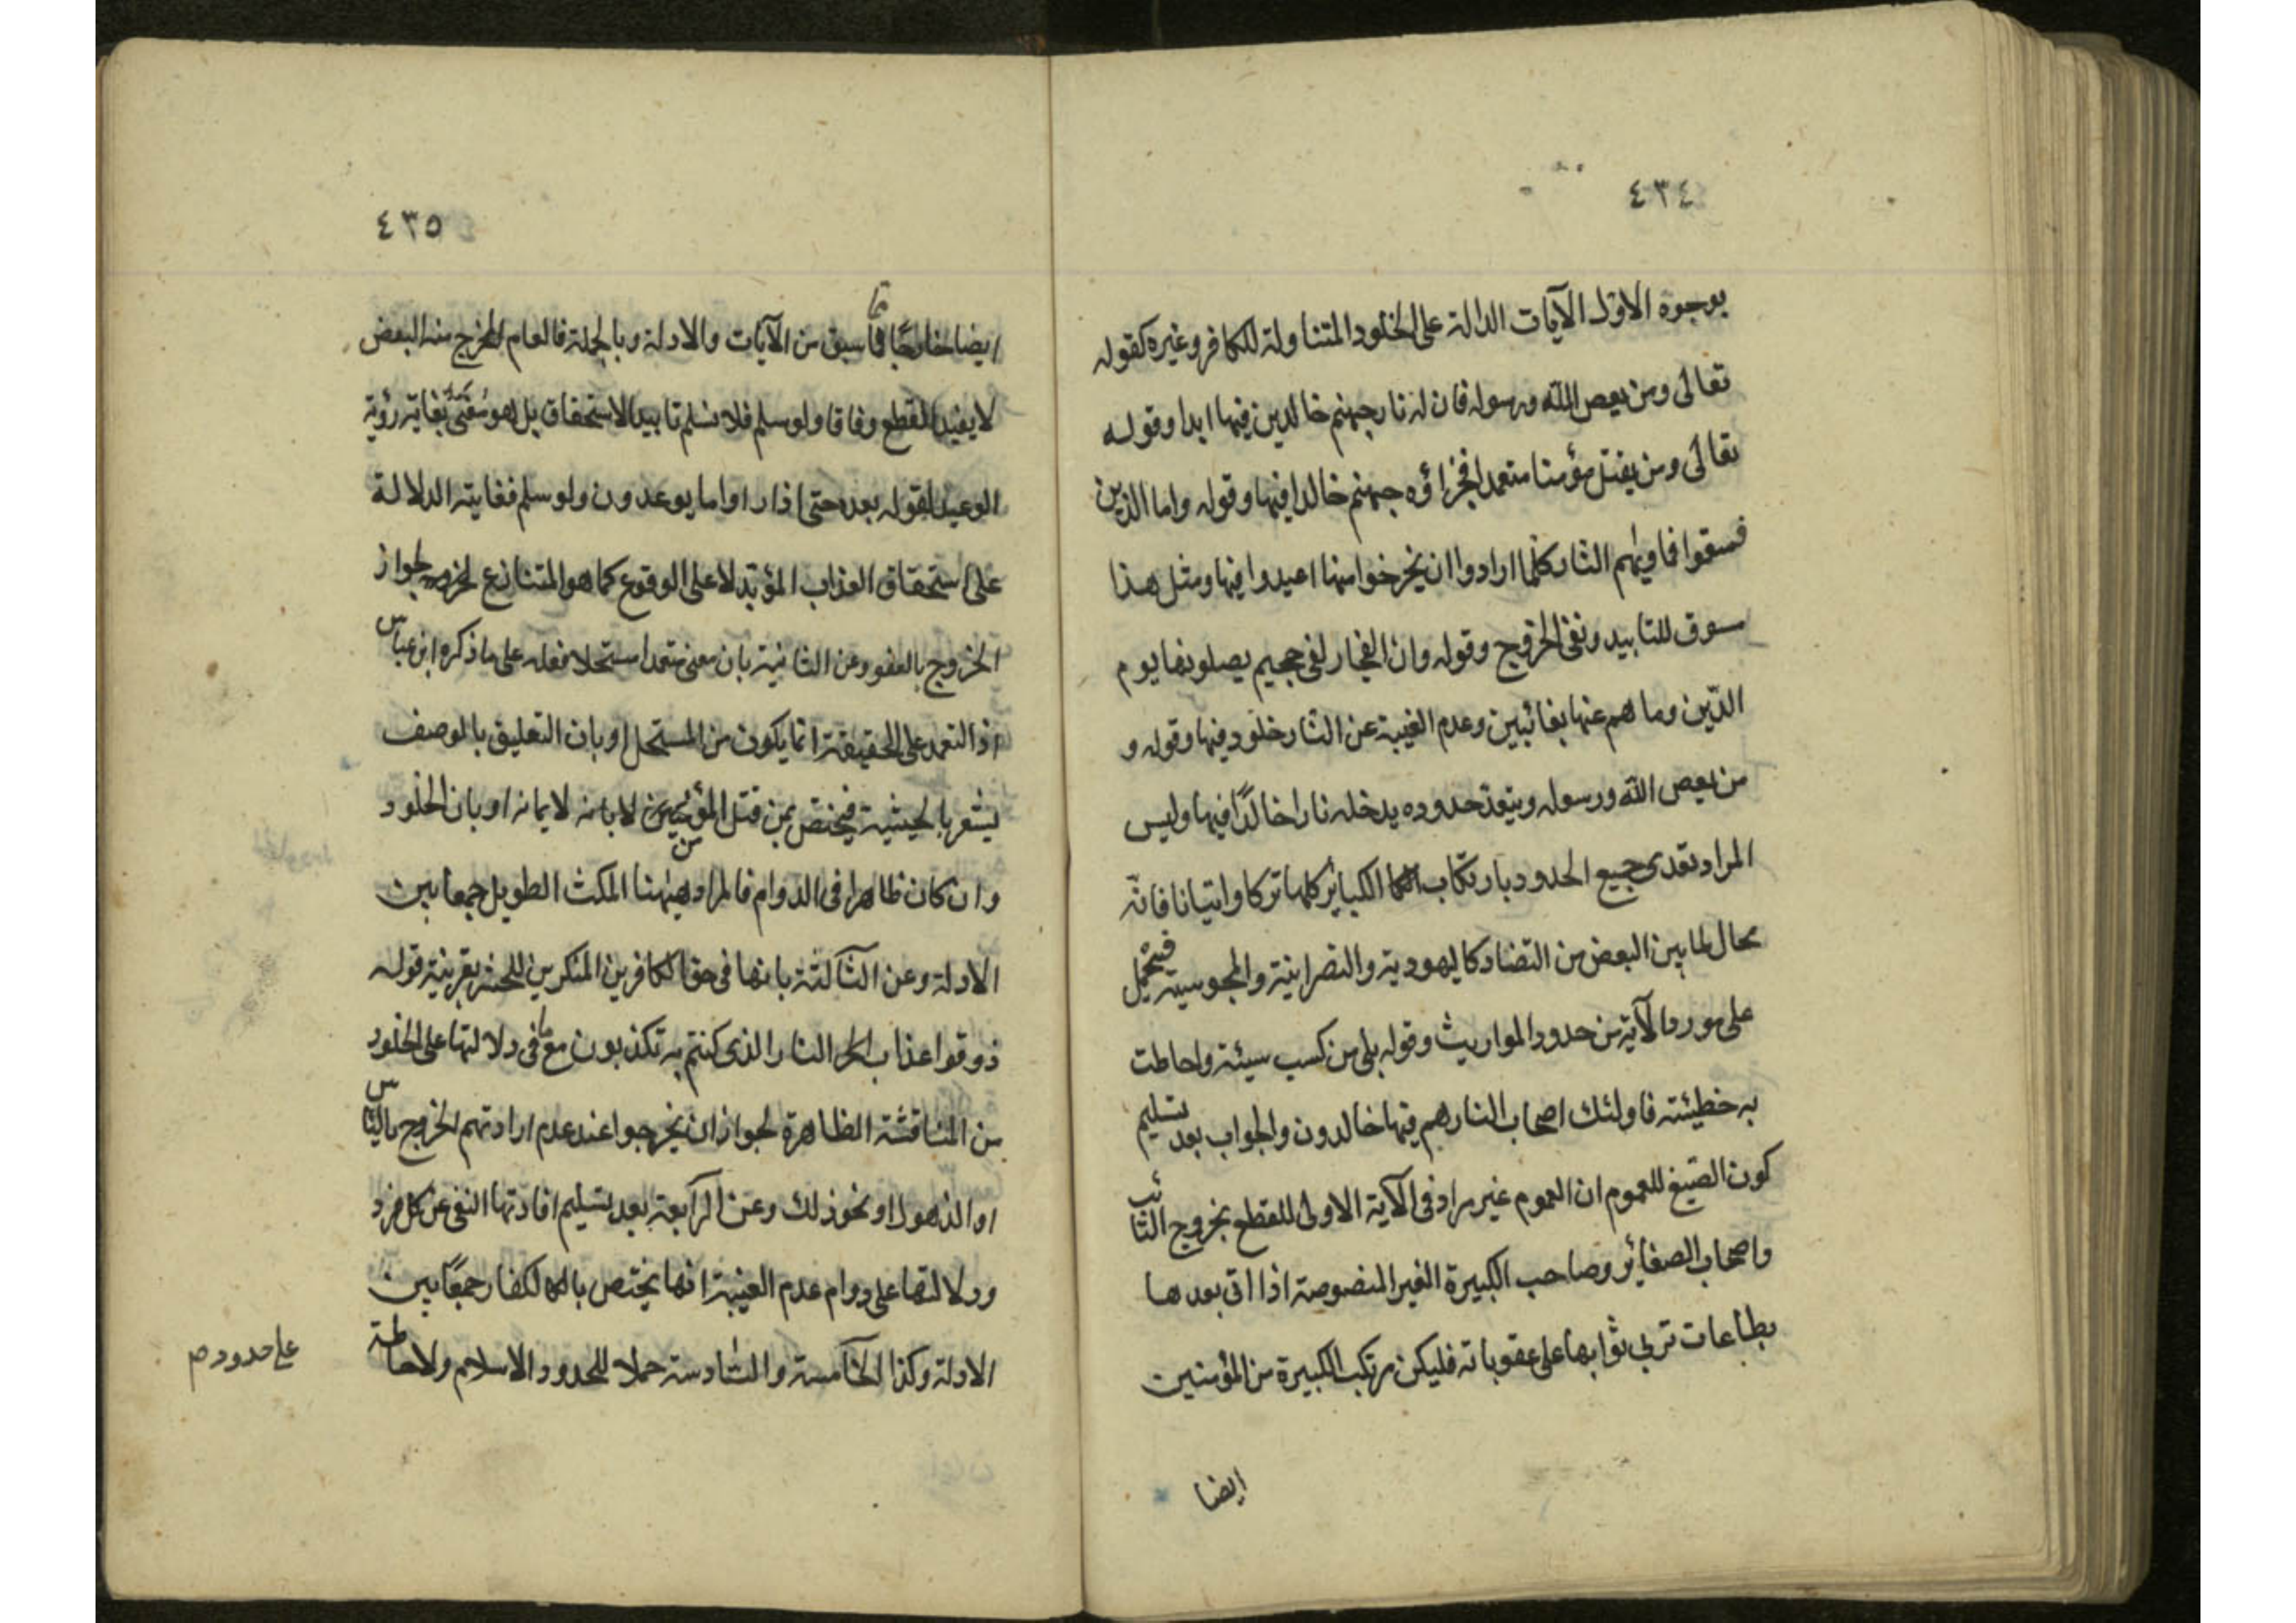 ٤٣٤
بوجوه الاول الآيات الدالة على الخلود المتناولة للكافر وغيره كقوله
تعالى ومن يعص الله ورسوله فان له نار جهنم خالدين فيها ابدا وقوله
تعالى ومن يقتل مؤمنا متعمدا فجزاؤه جهنم خالدا فيها وقوله واما الذين
فسقوا فماويهم النار كلما ارادوا ان يخرجوا منها اعيدوا فيها ومثل هذا
سوق للتابيد ونفى الخروج وقوله وان الفجار لفى جحيم يصلونها يوم
الدّين وما هم عنها بغائبين وعدم الغيبة عن النار خلود فيها وقوله و
من يعص الله ورسوله ويتعد حدوده يدخله نارا خالدًا فيها وليس
المراد تعدى جميع الحدود بارتكاب الكبائر كلها تركا واتيانا فانّه
محال لما بين البعض من التضاد كاليهودية والنصرانية والمجوسية فيحمل
على مورد الآية من حدود المواريث وقوله بلى من كسب سيئة واحاطت
به خطيئته فاولئك اصحاب النار هم فيها خالدون والجواب بعد تسليم
كون الصّيغ للعموم ان العموم غير مراد فى الآية الاولى للقطع بخروج التائب
واصحاب الصغائر وصاحب الكبيرة الغير المنصوصة اذا اتى بعدها
بطاعات تربى ثوابها على عقوباته فليكن مرتكب الكبيرة من المؤمنين
ايضا
٤٣٥
ايضا خارجًا مما سبق من الآيات والادلة وبالجملة فالعام المخرج منه البعض
لا يفيد القطع وفاقا ولو سلم فلا نسلم تابيد الاستحقاق بل هو مغيّى بغاية رؤية
الوعيد لقوله بعده حتى اذا راوا ما يوعدون ولو سلم فغايته الدلالة
على استحقاق العذاب المؤبّد لا على الوقوع كما هو المتنازع لجواز
الخروج بالعفو وعن الثانية بان معنى متعمدا مستحلا فعله على ما ذكره ابن عباس
اذ التعمد على الحقيقة انما يكون من المستحل او بان التعليق بالوصف
يشعر بالحيثية فيختص بمن قتل المؤمن لايمانه او بان الخلود
وان كان ظاهرا فى الدوام فالمراد هيهنا المكث الطويل جمعا بين
الادلة وعن الثالثة بانها فى حق الكافرين المنكرين للحشر بقرينة قوله
ذوقوا عذاب النار الذى كنتم به تكذبون مع ما فى دلالتها على الخلود
من المناقشة الظاهرة لجواز ان يخرجوا عند عدم ارادتهم الخروج بالياس
او الذهول او نحو ذلك وعن الرابعة بعد تسليم افادتها النفى عن كل فرد
ودلالتها على دوام عدم الغيبة انها يختص بالكفار جمعًا بين
الادلة وكذا الخامسة والسادسة حملا للحدود الاسلام ولاحاطة
على حدود صم